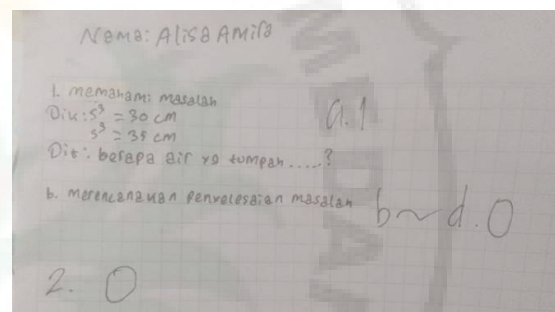 Nama: Alisa Amira
1. memahami masalah
Dik: s³ = 30 cm
s³ = 35 cm
Dit: berapa air yg tumpah.....?
b. merencanakan penyelesaian masalah
a. 1
b~d. 0
2. 0